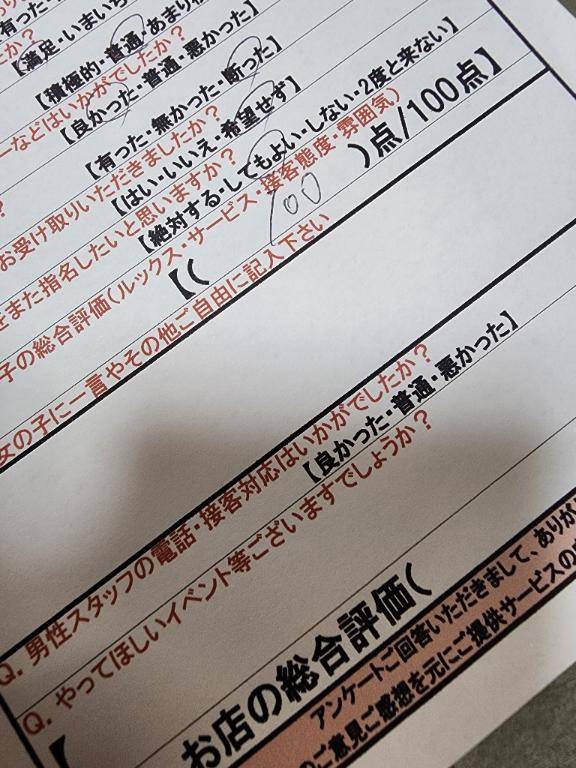 【満足・いまいち
【積極的・普通・あまり
などはいかがでしたか？
【良かった・普通・悪かった】
【有った・無かった・断った】
お受け取りいただきましたか？
【はい・いいえ・希望せず】
また指名したいと思いますか？
【絶対する・してもよい・しない・2度と来ない】
子の総合評価(ルックス・サービス・接客態度・雰囲気)
【( 100 )点/100点】
女の子に一言やその他ご自由に記入下さい
Q. 男性スタッフの電話・接客対応はいかがでしたか？
【良かった・普通・悪かった】
Q. やってほしいイベント等ございますでしょうか？
お店の総合評価(
アンケートご回答いただきまして、ありが
のご意見ご感想を元にご提供サービスの